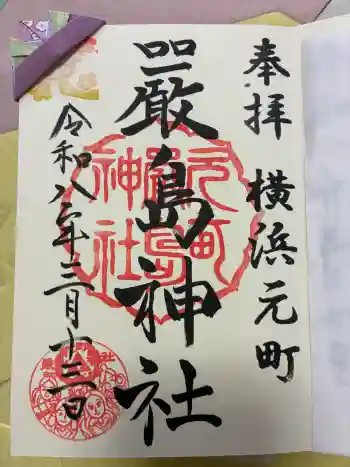 奉拝 横浜元町
嚴島神社
令和八年三月十三日
元町
嚴島
神社